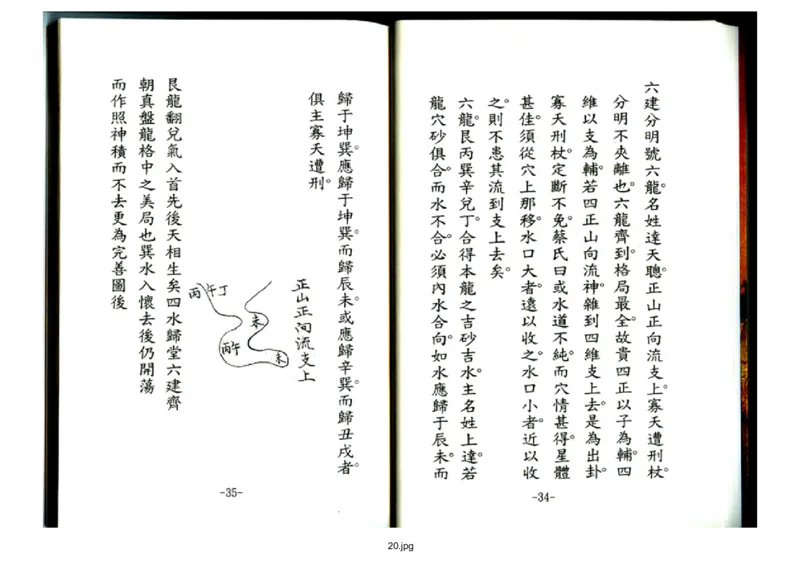 六建分明號六龍。名姓達天聰。正山正向流支上。寡夭遭刑杖。
分明不夾離也。六龍齊到。格局最全。故貴四正以子為輔。四
維以支為輔。若四正山向流神。雜到四維支上去。是為出卦。
寡夭刑杖。定斷不免。蔡氏曰或水道不純。而穴情甚得。星體
甚佳。須從穴上那移。水口大者。遠以收之。水口小者。近以收
之。則不患其流到支上去矣。
六龍。艮丙巽辛兌丁。合得本龍之吉砂吉水。主名姓上達。若
龍穴砂俱合。而水不合。必須內水合向。如水應歸于辰未。而
-34-
歸于坤巽。應歸于坤巽。而歸辰未。或應歸辛巽。而歸丑戌者。
俱主寡夭遭刑。
正山正向流支上
丙
午丁
未
丙午
未
艮龍翻兌氣入首先後天相生矣四水歸堂六建齊
朝真盤龍格中之美局也巽水入懷去後仍開蕩
而作照神積而不去更為完善圖後
-35-
20.jpg